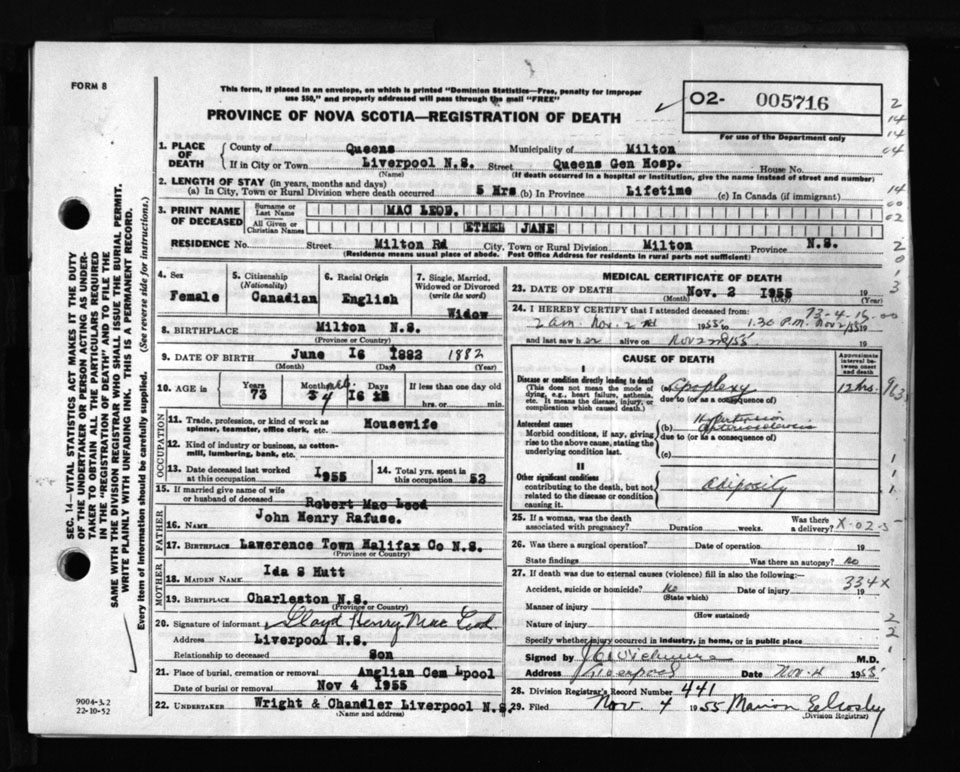 FORM 8
This form, if placed in an envelope, on which is printed "Dominion Statistics—Free, penalty for improper
use $50," and properly addressed will pass through the mail "FREE"
PROVINCE OF NOVA SCOTIA—REGISTRATION OF DEATH
02- 005716
For use of the Department only
2
14
14
04
14
00
02
2
0
1
3
1. PLACE OF DEATH
County of Queens Municipality of Milton
If in City or Town Liverpool N.S. Street Queens Gen Hosp. House No.
(Name) (If death occurred in a hospital or institution, give the name instead of street and number)
2. LENGTH OF STAY (in years, months and days)
(a) In City, Town or Rural Division where death occurred 5 Hrs (b) In Province Lifetime (c) In Canada (if immigrant)
3. PRINT NAME OF DECEASED
Surname or Last Name MAC LEOD.
All Given or Christian Names ETHEL JANE
RESIDENCE No. Street Milton Rd City, Town or Rural Division Milton Province N.S.
(Residence means usual place of abode. Post Office Address for residents in rural parts not sufficient)
4. Sex Female
5. Citizenship (Nationality) Canadian
6. Racial Origin English
7. Single, Married, Widowed or Divorced (write the word) Widow
8. BIRTHPLACE Milton N.S.
(Province or Country)
9. DATE OF BIRTH June 16 1882 1882
(Month) (Day) (Year)
10. AGE in Years 73 Months 4 Days 16 If less than one day old hrs. or min.
OCCUPATION
11. Trade, profession, or kind of work as spinner, teamster, office clerk, etc. Housewife
12. Kind of industry or business, as cotten-mill, lumbering, bank, etc.
13. Date deceased last worked at this occupation 1955
14. Total yrs. spent in this occupation 52
15. If married give name of wife or husband of deceased Robert Mac Leod
FATHER
16. NAME John Henry Rafuse.
17. BIRTHPLACE Lawerence Town Halifax Co N.S.
(Province or Country)
MOTHER
18. MAIDEN NAME Ida S Hutt
19. BIRTHPLACE Charleston N.S.
(Province or Country)
20. Signature of informant Lloyd Henry Mac Leod.
Address Liverpool N.S.
Relationship to deceased Son
21. Place of burial, cremation or removal Anglian Cem Lpool
Date of burial or removal Nov 4 1955
22. UNDERTAKER Wright & Chandler Liverpool N.S.
(Name and address)
MEDICAL CERTIFICATE OF DEATH
23. DATE OF DEATH Nov. 2 1955 19
(Month) (Day) (Year)
73-4-16-00
24. I HEREBY CERTIFY that I attended deceased from:
2 am. Nov. 2nd 1955 to 1.30 P.M. Nov 2/55 19
and last saw her alive on Nov 2nd/55 19
CAUSE OF DEATH
Approximate interval between onset and death
I
Disease or condition directly leading to death
(This does not mean the mode of dying, e.g., heart failure, asthenia, etc. It means the disease, injury, or complication which caused death.)
(a) Apoplexy 12 hrs.
due to (or as a consequence of)
Antecedent causes
Morbid conditions, if any, giving rise to the above cause, stating the underlying condition last.
(b) Hypertension
Arteriosclerosis
due to (or as a consequence of)
(c)
II
Other significant conditions
contributing to the death, but not related to the disease or condition causing it.
Adiposity
1
1
1
25. If a woman, was the death associated with pregnancy? Duration weeks. Was there a delivery? X-02-5
26. Was there a surgical operation? Date of operation 19
State findings Was there an autopsy? No
27. If death was due to external causes (violence) fill in also the following:—
334X
Accident, suicide or homicide? No Date of injury 19
(State which)
Manner of injury
(How sustained)
Nature of injury
Specify whether injury occurred in industry, in home, or in public place
2
2
Signed by M.D.
Address Liverpool Date Nov. 4 1955
28. Division Registrar's Record Number 441
29. Filed Nov. 4 1955 Marion E. Crosby
(Division Registrar)
SEC. 14—VITAL STATISTICS ACT MAKES IT THE DUTY
OF THE UNDERTAKER OR PERSON ACTING AS UNDER-
TAKER TO OBTAIN ALL THE PARTICULARS REQUIRED
IN THE "REGISTRATION OF DEATH" AND TO FILE THE
SAME WITH THE DIVISION REGISTRAR WHO SHALL ISSUE THE BURIAL PERMIT.
WRITE PLAINLY WITH UNFADING INK. THIS IS A PERMANENT RECORD.
Every item of information should be carefully supplied. (See reverse side for instructions.)
9004-3.2
22-10-52